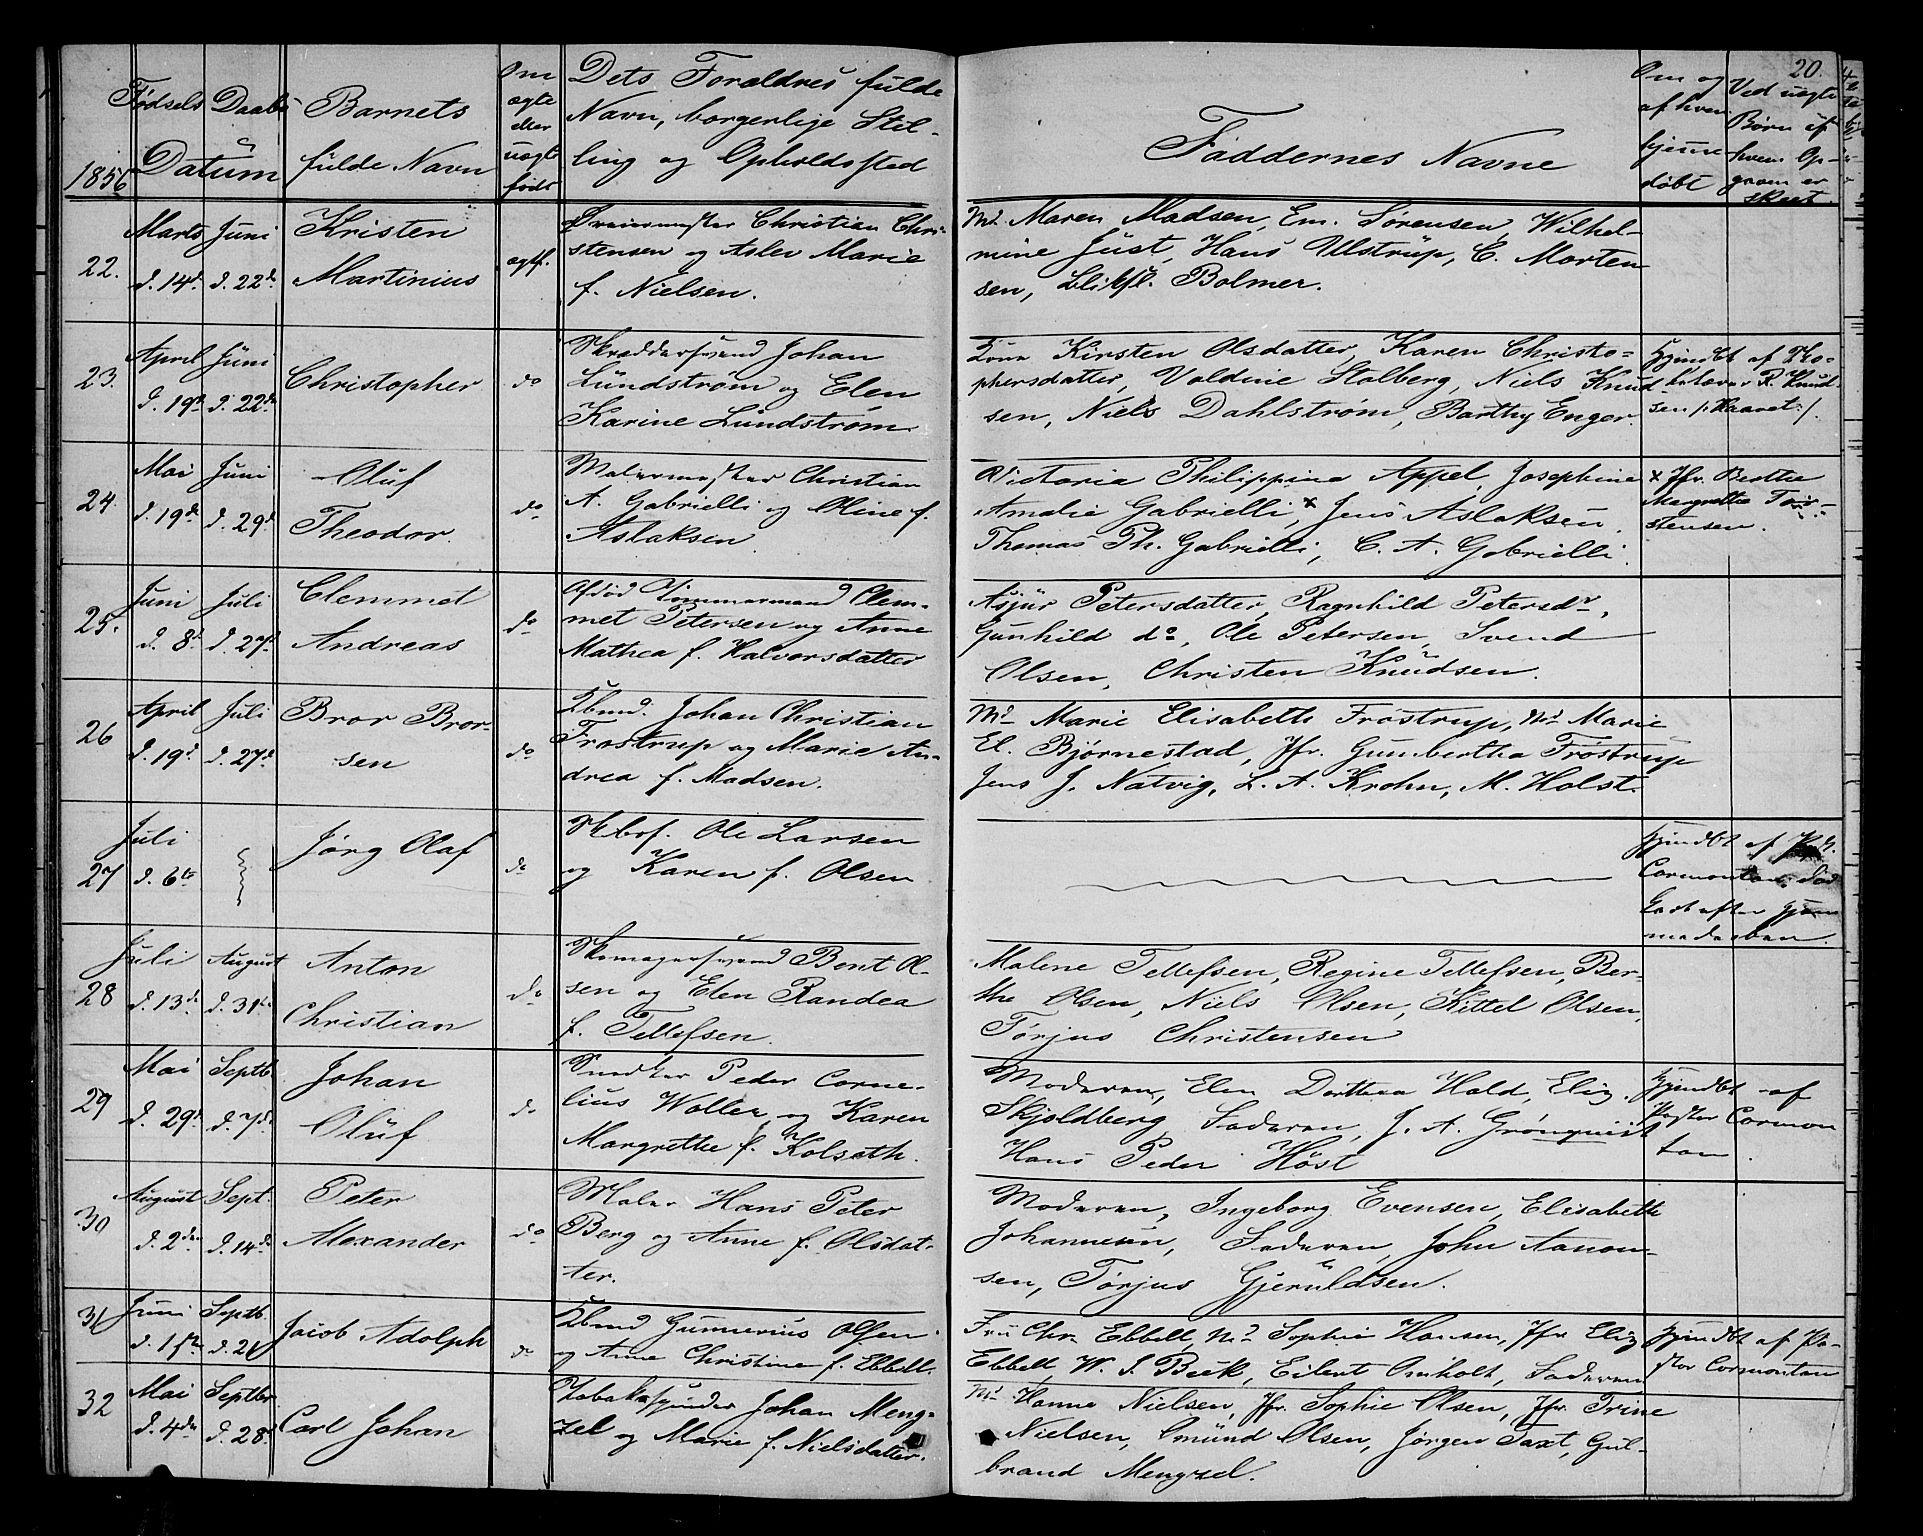 20.
1856
Fødsels Daabs
Datum
Barnets
fulde Navn
Om
ægte
eller
uægte
født
Dets Forældres fulde
Navn, borgerlige Stil-
ling og Opholdssted
Faddernes Navne
Om og
af hvem
hjemme
døbt
Ved uægte
Børn af
hvem Op-
gaven er
skeet
22.
Marts Juni
d. 14d. d. 22d.
Kristen
Martinius
ægtf.
Dreiermester Christian Chri-
stensen og Aslev Marie
f. Nielsen.
Md. Maren Madsen, Em. Sørensen, Wilhel-
mine Just, Hans Ulstrup, C. Morten
sen, Bolmer.
23.
April Juni
d. 19d. d. 22d.
Christopher
do
Skræddersvend Johan
Lundstrøm og Elen
Karine Lundstrøm
Kone Kirsten Olsdatter, Karen Christo=
phersdatter, Valdine Stalberg, Niels Knud-
sen, Niels Dahlstrøm, Barthy Enger.
Hjmdbt af
R. Knud-
sen /: Haavet :/.
24.
Mai Juni
d. 19d. d. 29d.
Oluf
Theodor.
do
Malermester Christian
A. Gabrielli og Oline f.
Aslaksen.
Victoria Philippina Appel, Josephine
Amalie Gabrielli, x Jens Aslaksen,
Thomas Ph. Gabrielli, C. A. Gabrielli.
x Jfr. Berthe
Margrethe Tor-
stensen.
25.
Juni Juli
d. 8d. d. 27d.
Clemmet
Andreas
do
Afdød Tømmermand Clem-
met Petersen og Anne
Mathea f. Halvorsdatter
Asjür Petersdatter, Ragnhild Petersdr,
Gunhild do, Ole Petersen, Svend
Olsen, Christen Knudsen.
26
April Juli
d. 19d. d. 27d.
Bror Bror-
sen
do
Kbmd. Johan Christian
Frøstrup og Marie An-
drea f. Madsen.
Md Marie Elisabeth Frøstrup, Md Marie
El. Bjørnestad, Jfr. Gumbertha Frøstrup
Jens J. Natvig, L. A. Krohn, M. Holst.
27
Juli
d. 6te
Jørg Olaf
do
Skbsf. Ole Larsen
og Karen f. Olsen
Hjmdbt af
Cormontan, død
strax efter Hjem-
medaaben.
28
Juli August
d. 13de d. 31te
Anton
Christian
do
Skomagersvend Bent Ol-
sen og Elen Randea
f. Tellefsen.
Malene Tellefsen, Regine Tellefsen, Ber-
the Olsen, Niels Olsen, Kittel Olsen,
Tørjus Christensen
29
Mai Septb.
d. 29d. d. 7d.
Johan
Oluf
do
Snedker Peder Corne-
lius Woller og Karen
Margrethe f. Kolseth.
Moderen, Elen Dorthea Hald, Eliz.
Skjoldberg, Faderen, J. A. Grönquist
Hans Peder Høst
Hjmdbt af
Pastor Cormon
tan.
30
August Sept.
d. 2den d. 14de
Peter
Alexander
do
Maler Hans Peter
Berg og Anne f. Olsdat-
ter.
Moderen, Ingeborg Evensen, Elisabeth
Johannesen, Faderen, John Aanon-
sen, Tørjus Gjeruldsen.
31
Juni Septb.
d. 1ste d. 21
Jacob Adolph
do
Kbmd Gunnerius Olsen
og Anne Christine f. Ebbell.
Fru Chr. Ebbell, Md Sophie Hansen, Jfr Eliz
Ebbell, W. S. Beck, Eilert Omholt, Faderen
Hjmdbt af Pa-
stor Cormontan
32
Mai Septbr
d. 4de d. 28d.
Carl Johan
Tobakspinder Johan Meng-
zel og Marie f. Nielsdatter.
Md Hanne Nielsen, Jfr. Sophie Olsen, Jfr. Trine
Nielsen, Omünd Olsen, Jørgen Taxt, Gul-
brand Mengzel.